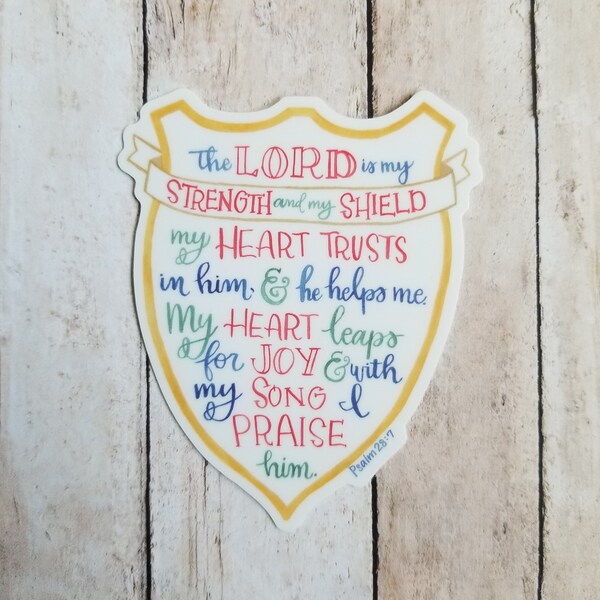 the LORD is my
STRENGTH and my SHIELD
my HEART TRUSTS
in him, & he helps me.
My HEART leaps
for JOY & with
my SONG I
PRAISE
him.
Psalm 28:7